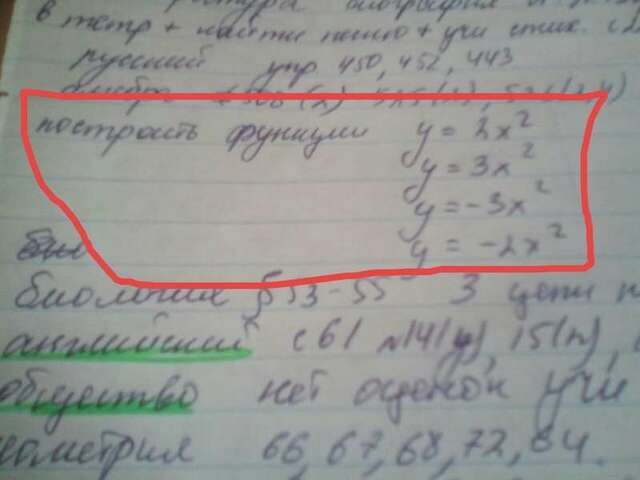 в тетр + найти + учи стих.
русский упр 450, 452, 443
алгебра
построить функции y = 2x²
y = 3x²
y = -3x²
y = -2x²
биология §53-55 3 цепи
английский с 61 №14(у), 15(п),
общество нет оценок учи
геометрия 66, 67, 68, 72, 84.